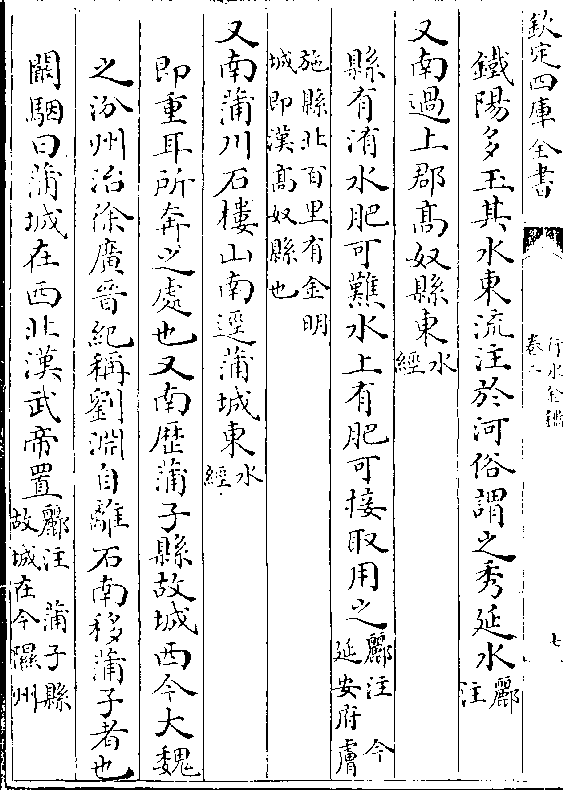 欽定四庫全書
行水金鑑
卷一
七
鐵陽多玉其水東流注於河俗謂之秀延水酈注
又南過上郡高奴縣東水經
縣有洧水肥可𤓰水上有肥可接取用之酈注 今延安府膚
施縣北百里有金明城即漢高奴縣也
又南蒲川石樓山南逕蒲城東水經
即重耳所奔之處也又南歷蒲子縣故城西今大魏
之汾州治徐廣晉紀稱劉淵自離石南移蒲子者也
闞駰曰蒲城在西北漢武帝置酈注 蒲子縣故城在今隰州